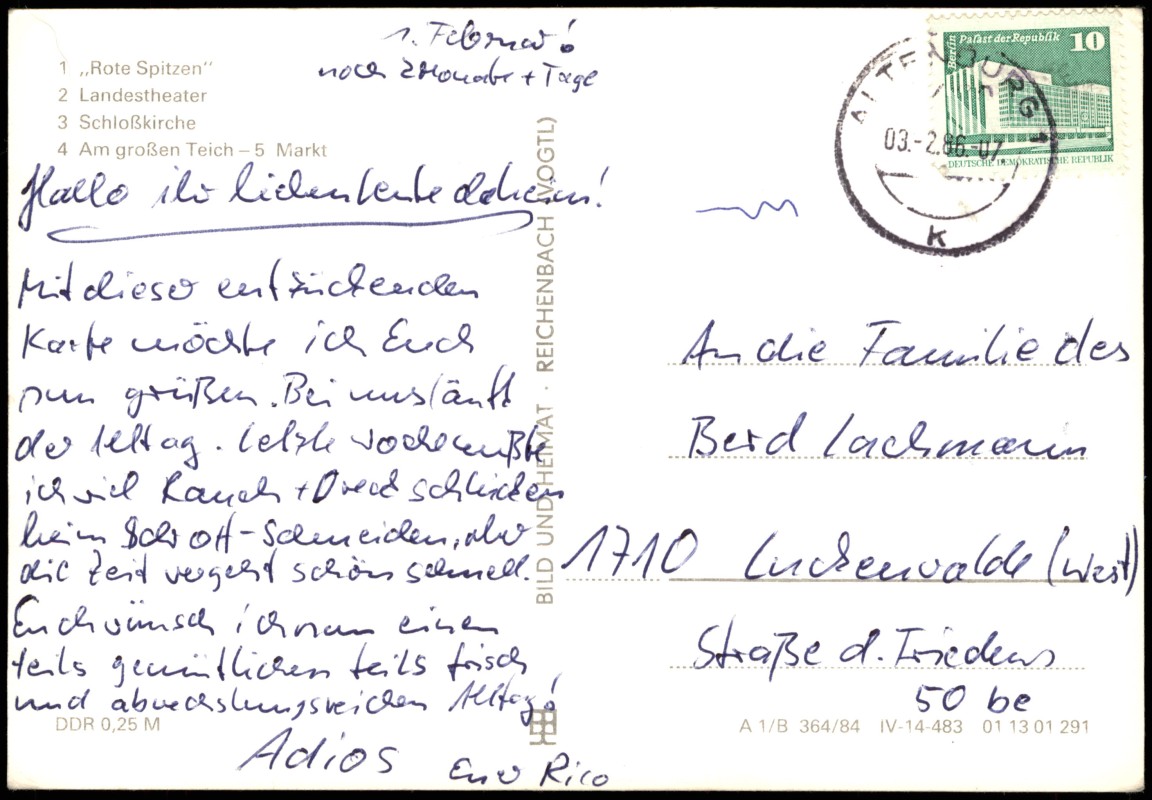 1. Februar!
noch 2 Monate + Tage
1 „Rote Spitzen"
2 Landestheater
3 Schloßkirche
4 Am großen Teich – 5 Markt
Hallo ihr lieben Leute daheim!
Mit dieser entzückenden
Karte möchte ich Euch
nun grüßen. Bei uns läuft
der Alltag. Letzte Woche mußte
ich viel Rauch + Dreck schlucken
beim Schrott-Schneiden, aber
die Zeit vergeht schön schnell.
Euch wünsch ich nun einen
teils gemütlichen teils frisch
und abwechslungsreichen Alltag!
Adios Euer Rico
DDR 0,25 M
BILD UND HEIMAT · REICHENBACH (VOGTL)
Berlin Palast der Republik 10
DEUTSCHE DEMOKRATISCHE REPUBLIK
ALTENBURG 1
03.-2.86.-07
k
An die Familie des
Berd Lachmann
1710 Luckenwalde (West)
Straße d. Friedens
50 be
A 1/B 364/84 IV-14-483 01 13 01 291